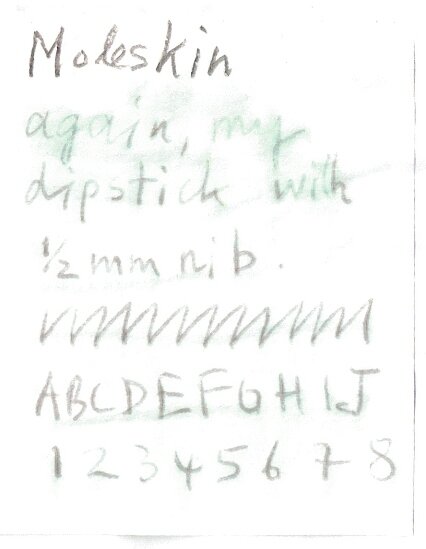 Moleskin
again, my
dipstick with
½ mm nib.
ABCDEFGHIJ
1 2 3 4 5 6 7 8